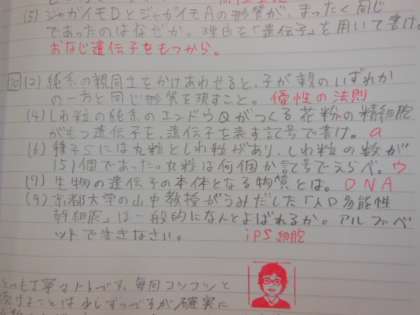 (5) ジャガイモDとジャガイモAの形質が、まったく同じ
であったのはなぜか。理由を「遺伝子」を用いて書け。
おなじ遺伝子をもつから。
(2) 純系の親同士をかけあわせると、子が親のいずれか
の一方と同じ形質を現すこと。 優性の法則
(4) しわ粒の純系のエンドウQがつくる花粉の精細胞
がもつ遺伝子を、遺伝子を表す記号で書け。 a
(6) 種子Sには丸粒としわ粒があり、しわ粒の数が
151個であった。丸粒は何個か記号でえらべ。 ウ
(7) 生物の遺伝子の本体となる物質とは。 DNA
(9) 京都大学の山中教授がうみだした「人口多能性
幹細胞」は一般的になんとよばれるか。アルファベ
ットで書きなさい。 iPS細胞
とても丁寧なノートです。毎回コツコツと
続けることは少しずつですが確実に